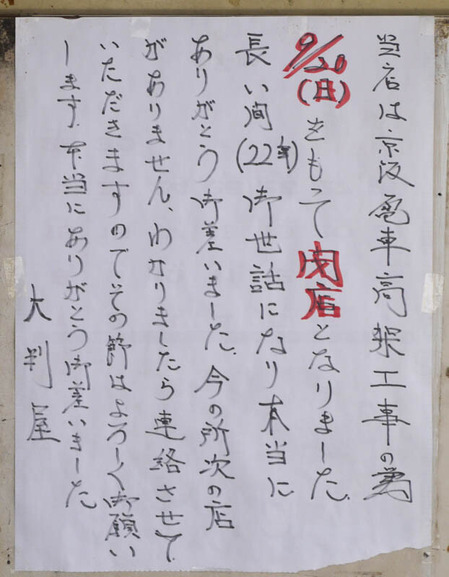 当店は京阪電車高架工事の為
9/20(日)をもって閉店となりました。
長い間(22年)御世話になり本当に
ありがとう御差いました。今の所次の店
がありません、わかりましたら連絡させて
いただきますのでその節はよろしく御願い
します。本当にありがとう御差いました
大判屋